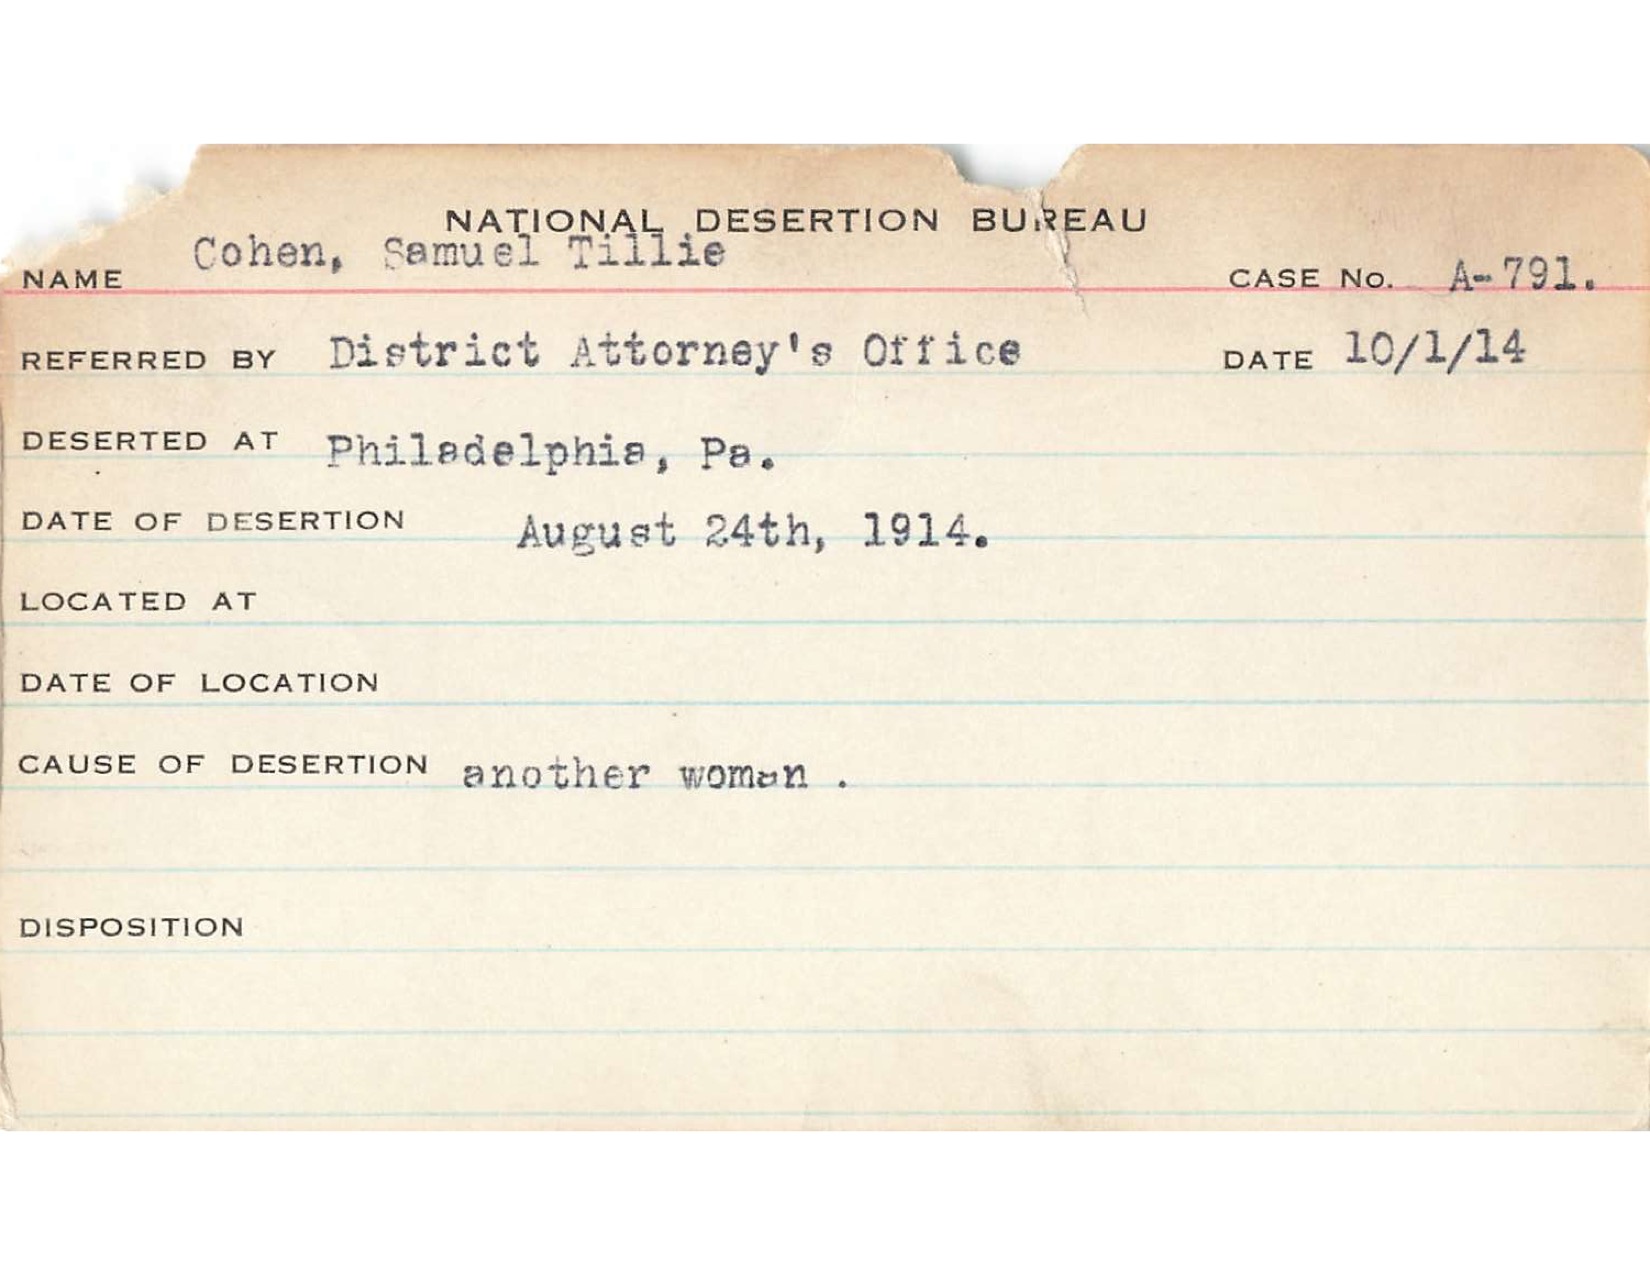 NATIONAL DESERTION BUREAU
NAME Cohen, Samuel Tillie CASE No. A-791.
REFERRED BY District Attorney's Office DATE 10/1/14
DESERTED AT Philadelphia, Pa.
DATE OF DESERTION August 24th, 1914.
LOCATED AT
DATE OF LOCATION
CAUSE OF DESERTION another woman .
DISPOSITION